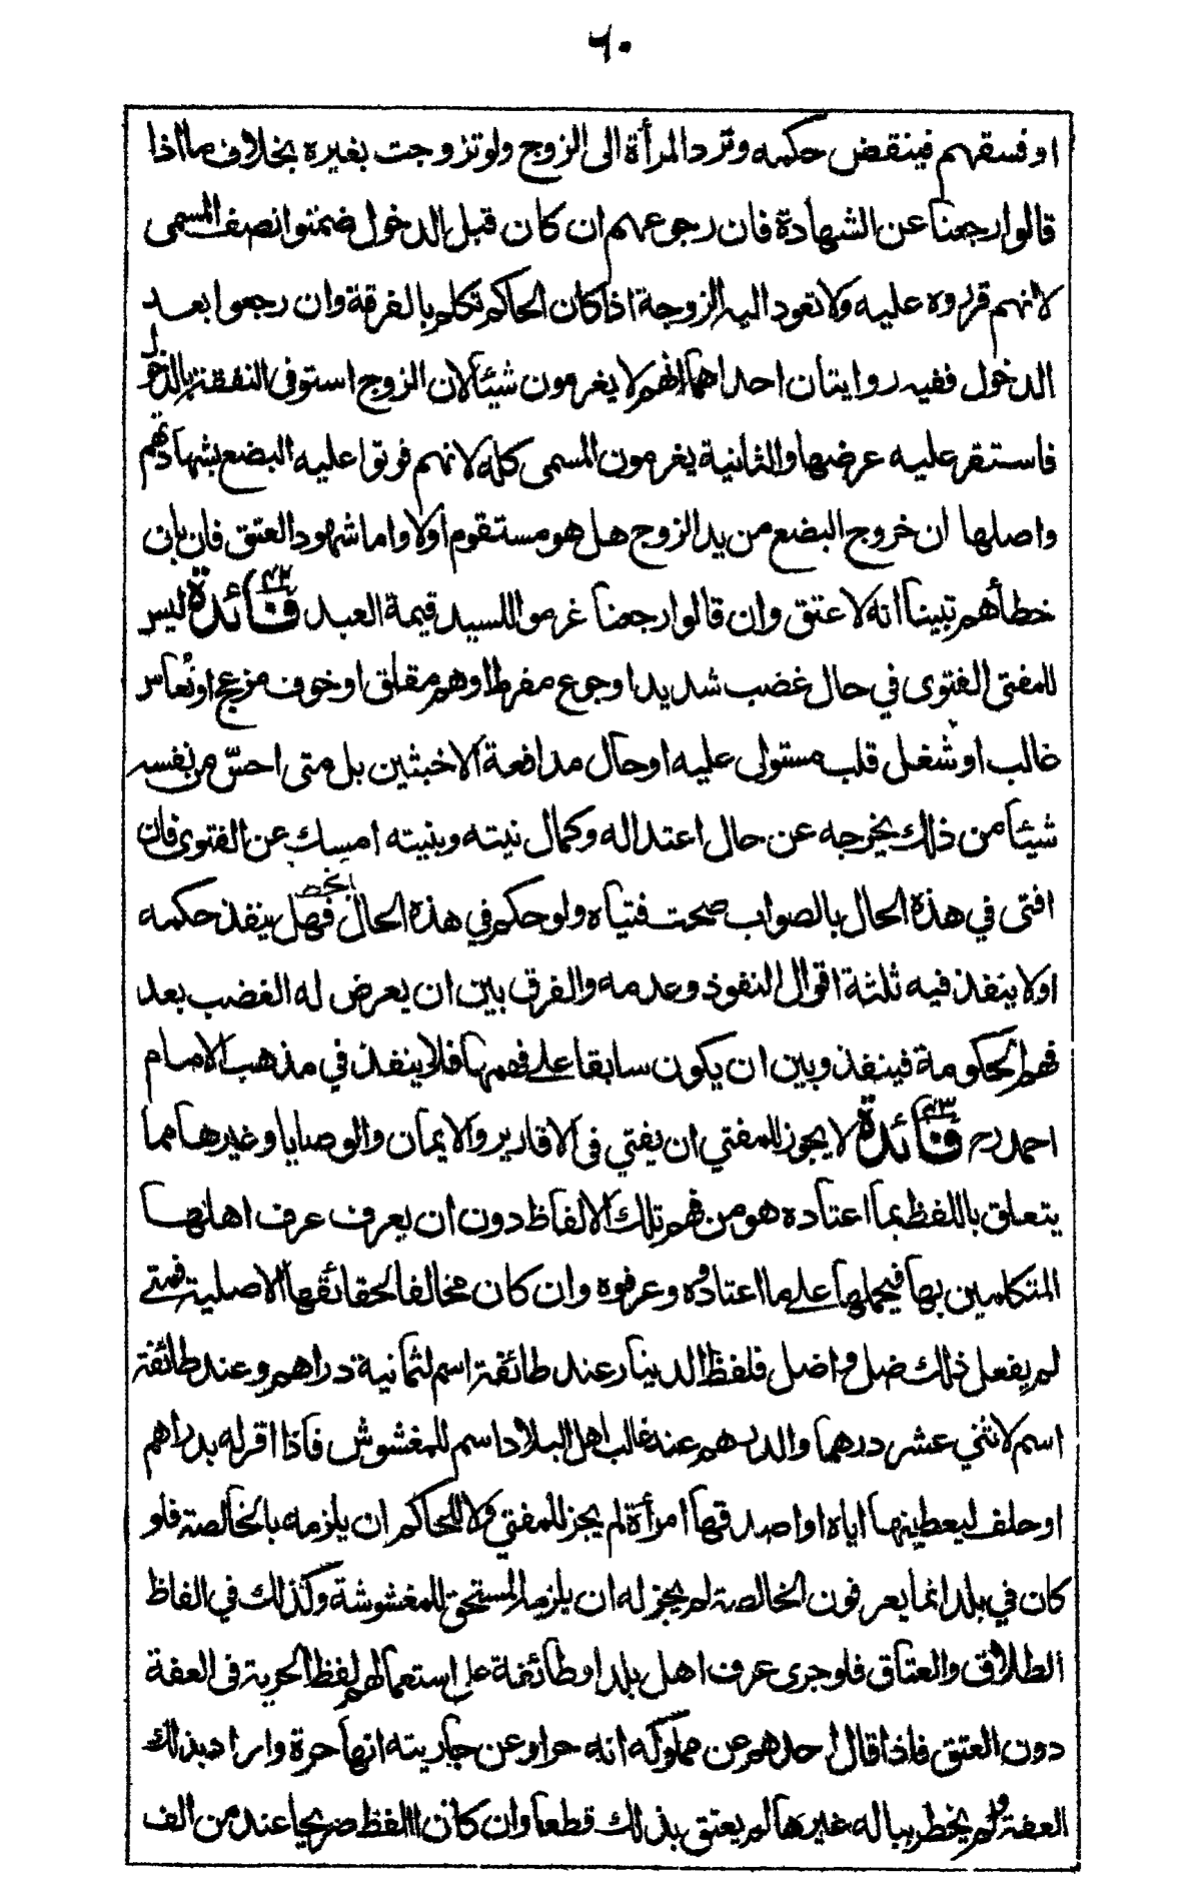 ٦٠
او فسقهم فينقض حكمه وترد المرأة الى الزوج ولو تزوجت بغيره بخلاف ما اذا
قالوا رجعنا عن الشهادة فان رجوعهم ان كان قبل الدخول ضمنوا نصف المسمى
لانهم قرروه عليه ولا تعود اليه الزوجة اذا كان الحاكم تكلم بالفرقة وان رجعوا بعد
الدخول ففيه روايتان احداهما انهم لا يغرمون شيئا لان الزوج استوفى النفقة بالدخول
فاستقر عليه عرضها والثانية يغرمون المسمى كله لانهم فوتوا عليه البضع بشهادتهم
واصلها ان خروج البضع من يد الزوج هل هو مستقوم اولا واما شهود العتق فان بان
خطأهم تبينا انه لا عتق وان قالوا رجعنا غرموا للسيد قيمة العبد فائدة ٤٢ ليس
للمفتى الفتوى في حال غضب شديد او جوع مفرط او هم مقلق او خوف مزعج او نعاس
غالب او شغل قلب مستولى عليه او حال مدافعة الاخبثين بل متى احسّ من نفسه
شيئا من ذلك يخرجه عن حال اعتداله وكمال نيته وبنيته امسك عن الفتوى فان
افتى في هذه الحال بالصواب صحت فتياه ولو حكم في هذه الحال فهل ينفذ حكمه
اولا ينفذ فيه ثلثة اقوال النفوذ وعدمه والفرق بين ان يعرض له الغضب بعد
فهم الحكومة فينفذ وبين ان يكون سابقا على فهمها فلا ينفذ في مذهب الامام
احمد رح فائدة ٤٣ لا يجوز للمفتي ان يفتي فى الاقارير والايمان والوصايا وغيرها مما
يتعلق باللفظ بما اعتاده هو من فهم تلك الالفاظ دون ان يعرف عرف اهلها
المتكلمين بها فيحملها على ما اعتادوه وعرفوه وان كان مخالفا لحقائقها الاصلية فمتى
لم يفعل ذلك ضل واضل فلفظ الدينار عند طائفة اسم لثمانية دراهم وعند طائفة
اسم لاثني عشر درهما والدرهم عند غالب اهل البلاد اسم للمغشوش فاذا اقر له بدراهم
او حلف ليعطينها اياه او اصدقها امرأة لم يجز للمفتي ولا للحاكم ان يلزمه بالخالصة فلو
كان في بلد انما يعرفون الخالصة لم يجز له ان يلزم المستحق للمغشوشة وكذلك في الفاظ
الطلاق والعتاق فلو جرى عرف اهل بلد او طائفة على استعمالهم لفظ الحرية فى العفة
دون العتق فاذا قال احدهم عن مملوكه انه حر او عن جاريته انها حرة واراد بذلك
العفة ولم يخطر بباله غيرها لم يعتق بذلك قطعا وان كان اللفظ صريحا عند من الف